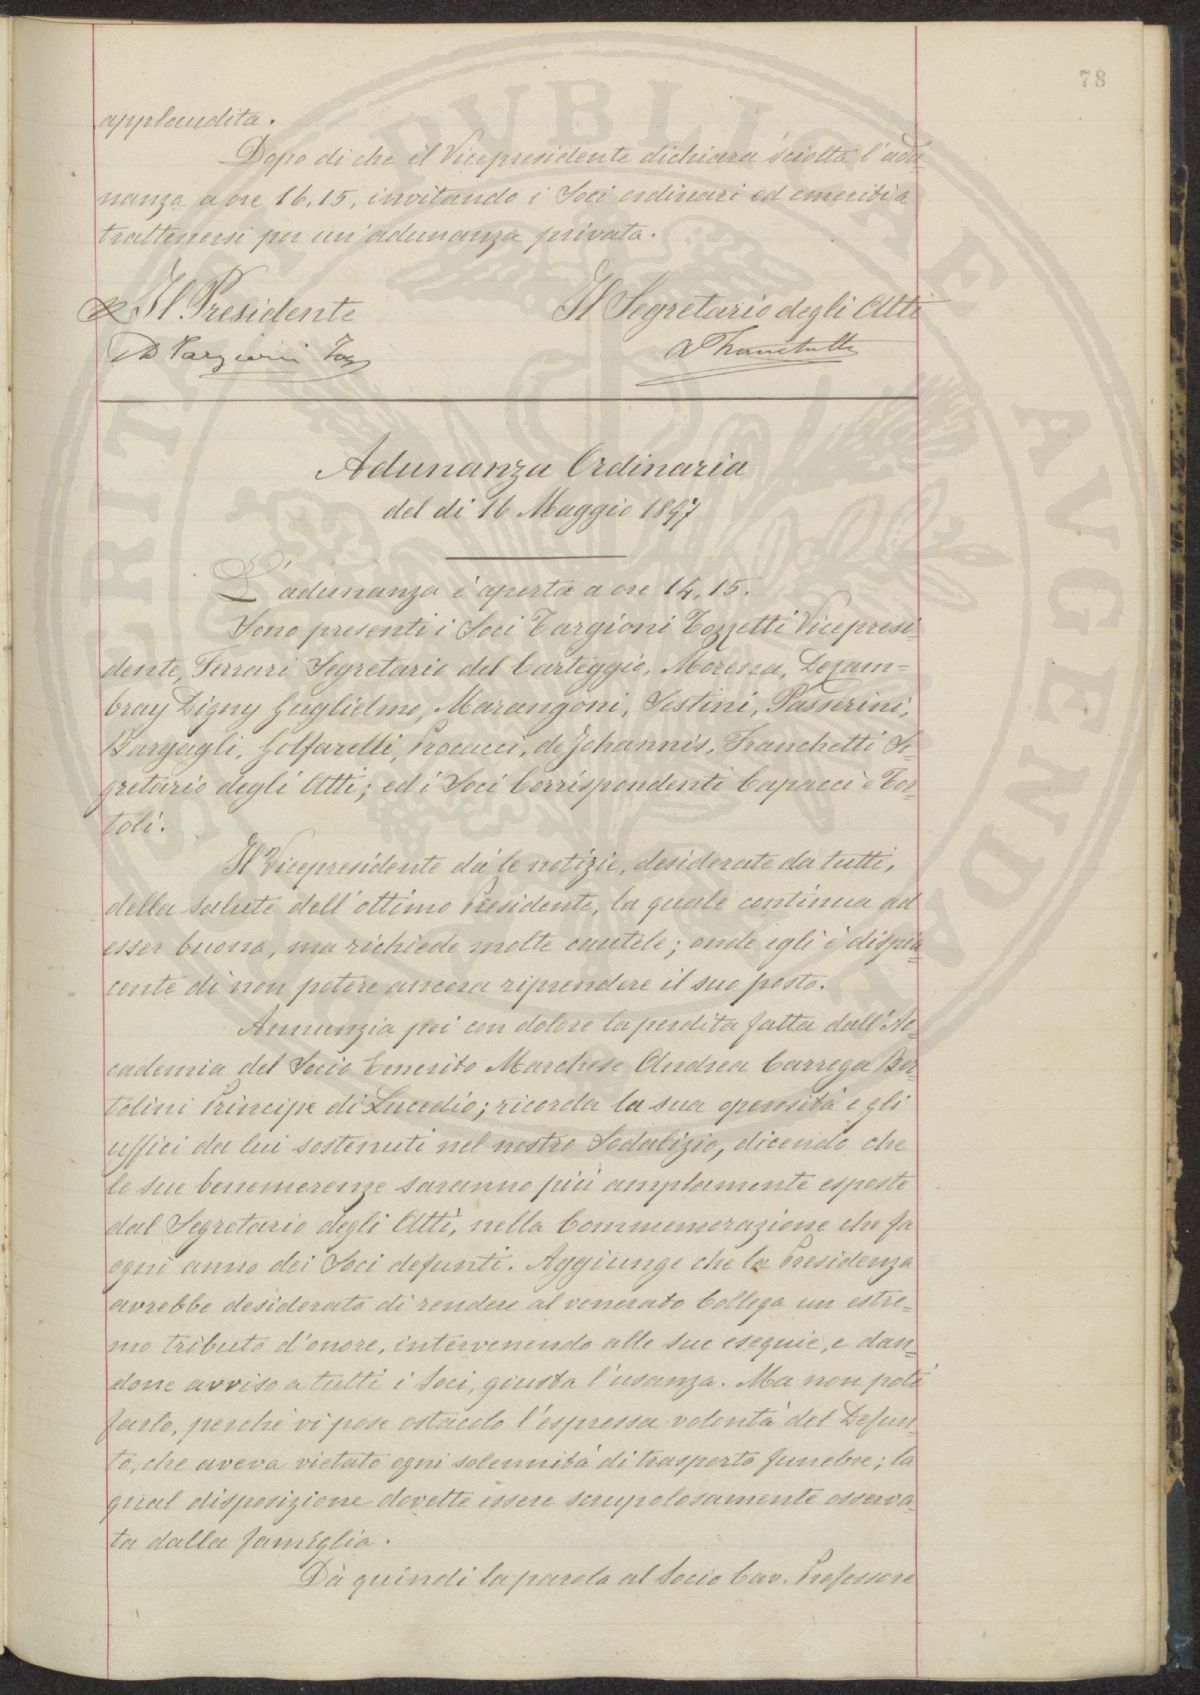 78
applaudita.
Dopo di che il Vicepresidente dichiara sciolta l'adu-
nanza a ore 16.15, invitando i Soci ordinari ed emeriti a
trattenersi per un'adunanza privata.
Il Presidente
Il Segretario degli Atti
AD Targioni Toz
A Franchetti
Adunanza Ordinaria
del dì 16 Maggio 1897
L'adunanza è aperta a ore 14.15.
Sono presenti i Soci Targioni Tozzetti Vicepresi-
dente, Ferrari Segretario del Carteggio, Morena, De Cam-
bray Digny Guglielmo, Marangoni, Sestini, Passerini,
Bargagli, Golfarelli, Procacci, de Johannis, Franchetti Se-
gretario degli Atti; ed i Soci Corrispondenti Capacci e Tor-
toli.
Il Vicepresidente dà le notizie, desiderate da tutti,
della salute dell'ottimo Presidente, la quale continua ad
esser buona, ma richiede molte cautele; onde egli è dispia-
cente di non potere ancora riprendere il suo posto.
Annunzia poi con dolore la perdita fatta dall'Ac-
cademia del Socio Emerito Marchese Andrea Carrega Ber-
tolini Principe di Lucedio; ricorda la sua operosità e gli
uffici da lui sostenuti nel nostro Sodalizio, dicendo che
le sue benemerenze saranno più ampiamente esposte
dal Segretario degli Atti, nella Commemorazione che fa
ogni anno dei Soci defunti. Aggiunge che la Presidenza
avrebbe desiderato di rendere al venerato Collega un estre-
mo tributo d'onore, intervenendo alle sue esequie, e dan-
done avviso a tutti i Soci, giusta l'usanza. Ma non potè
farlo, perchè vi pose ostacolo l'espressa volontà del Defun-
to, che aveva vietato ogni solennità di trasporto funebre; la
qual disposizione dovette essere scrupolosamente osserva-
ta dalla famiglia.
Dà quindi la parola al Socio Cav. Professore